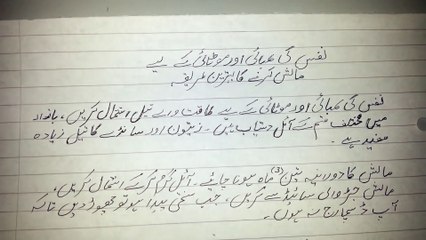 نفس کی لمبائی اور موٹائی کے لیے
مالش کرنے کا بہترین طریقہ
نفس کی لمبائی اور موٹائی کے لیے طاقت ور تیل استعمال کریں، بازار
میں مختلف قسم کے آئل دستیاب ہیں۔ زیتون اور سانڈے کا تیل زیادہ
مفید ہے۔
مالش کا دورانیہ تین (3) ماہ ہونا چاہئے۔ آئل گرم کر کے استعمال کریں،
مالش جڑ والی سائیڈ سے کریں، جب سختی پیدا ہو تو چھوڑ دیں تاکہ
آپ ڈسچارج نہ ہوں۔